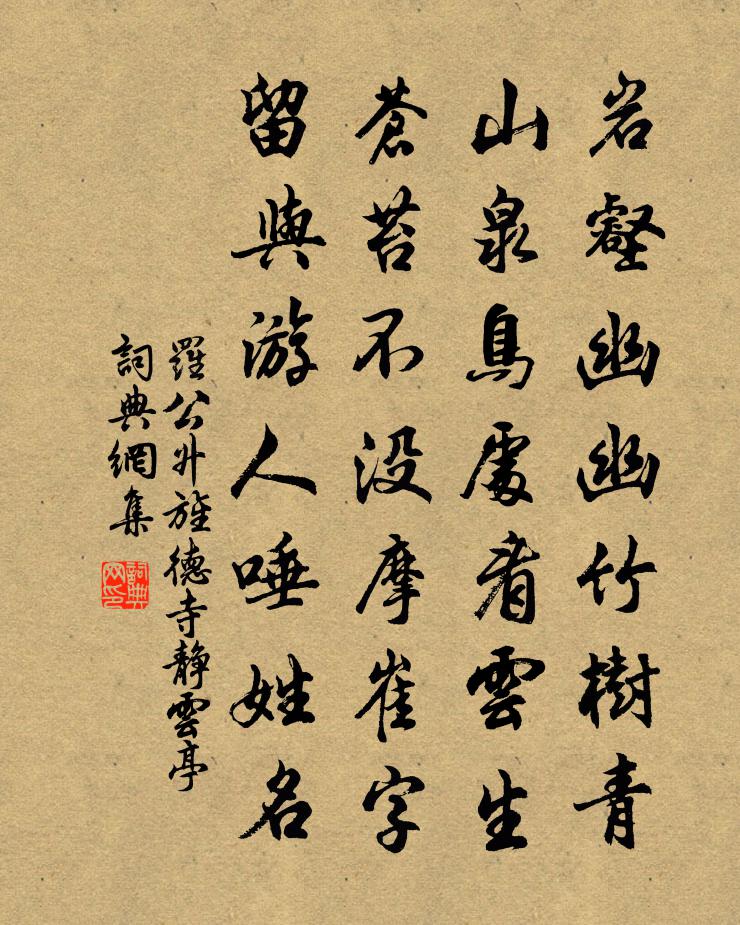 岩壑幽幽竹樹青
山泉鳥處看雲生
蒼苔不没摩崔字
留與游人唾姓名
羅公升旌德寺靜雲亭
詞典網集
詞典网印